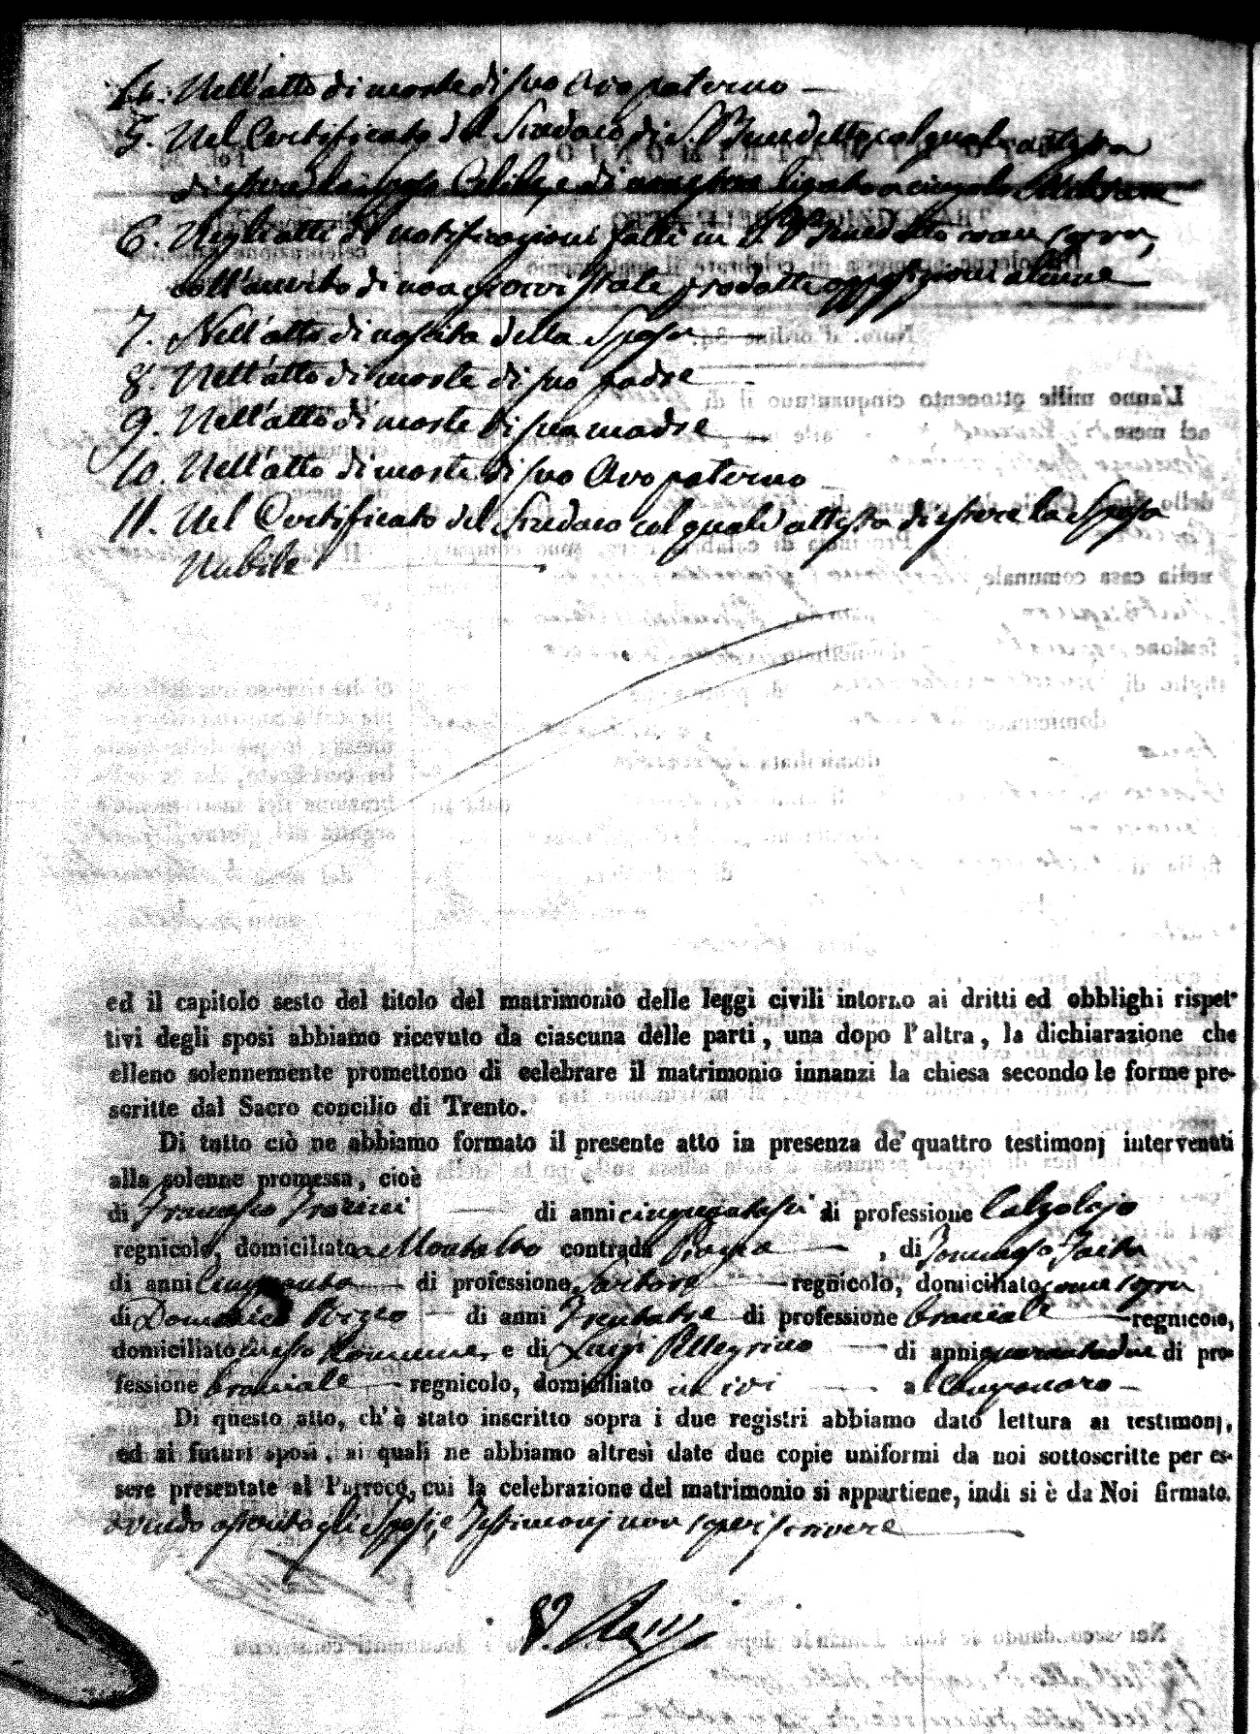 4. Nell'atto di morte di suo Avo paterno
5. Nel Certificato del Sindaco di S. Benedetto col quale attesta
di essere lo sposo Celibe, e di non essere ligato a
6. Negli atti di notificazioni fatti in S. Benedetto come sopra,
coll'inserito di non esservi state prodotte opposizioni alcune
7. Nell'atto di nascita della Sposa
8. Nell'atto di morte di suo padre
9. Nell'atto di morte di sua madre
10. Nell'atto di morte di suo Avo paterno
11. Nel Certificato del Sindaco col quale attesta di essere la Sposa
Nubile
ed il capitolo sesto del titolo del matrimonio delle leggi civili intorno ai dritti ed obblighi rispet-
tivi degli sposi abbiamo ricevuto da ciascuna delle parti, una dopo l'altra, la dichiarazione che
elleno solennemente promettono di celebrare il matrimonio innanzi la chiesa secondo le forme pre-
scritte dal Sacro concilio di Trento.
Di tutto ciò ne abbiamo formato il presente atto in presenza de' quattro testimonj intervenuti
alla solenne promessa, cioè
di Francesco di anni cinquantasei di professione Calzolajo
regnicolo, domiciliato a Montalto contrada Piazza, di Tommaso
di anni Cinquanta di professione Sartore regnicolo, domiciliato come sopra
di Domenico Rizzo di anni Trentatre di professione bracciale regnicolo,
domiciliato in esso Comune, e di Luigi Pellegrino di anni quarantadue di pro-
fessione bracciale regnicolo, domiciliato in ivi a
Di questo atto, ch'è stato inscritto sopra i due registri abbiamo dato lettura ai testimonj,
ed ai futuri sposi, ai quali ne abbiamo altresì date due copie uniformi da noi sottoscritte per es-
sere presentate al Parroco, cui la celebrazione del matrimonio si appartiene, indi si è da Noi firmato.
avendo asserito gli Sposi, e Testimonj non saper scrivere